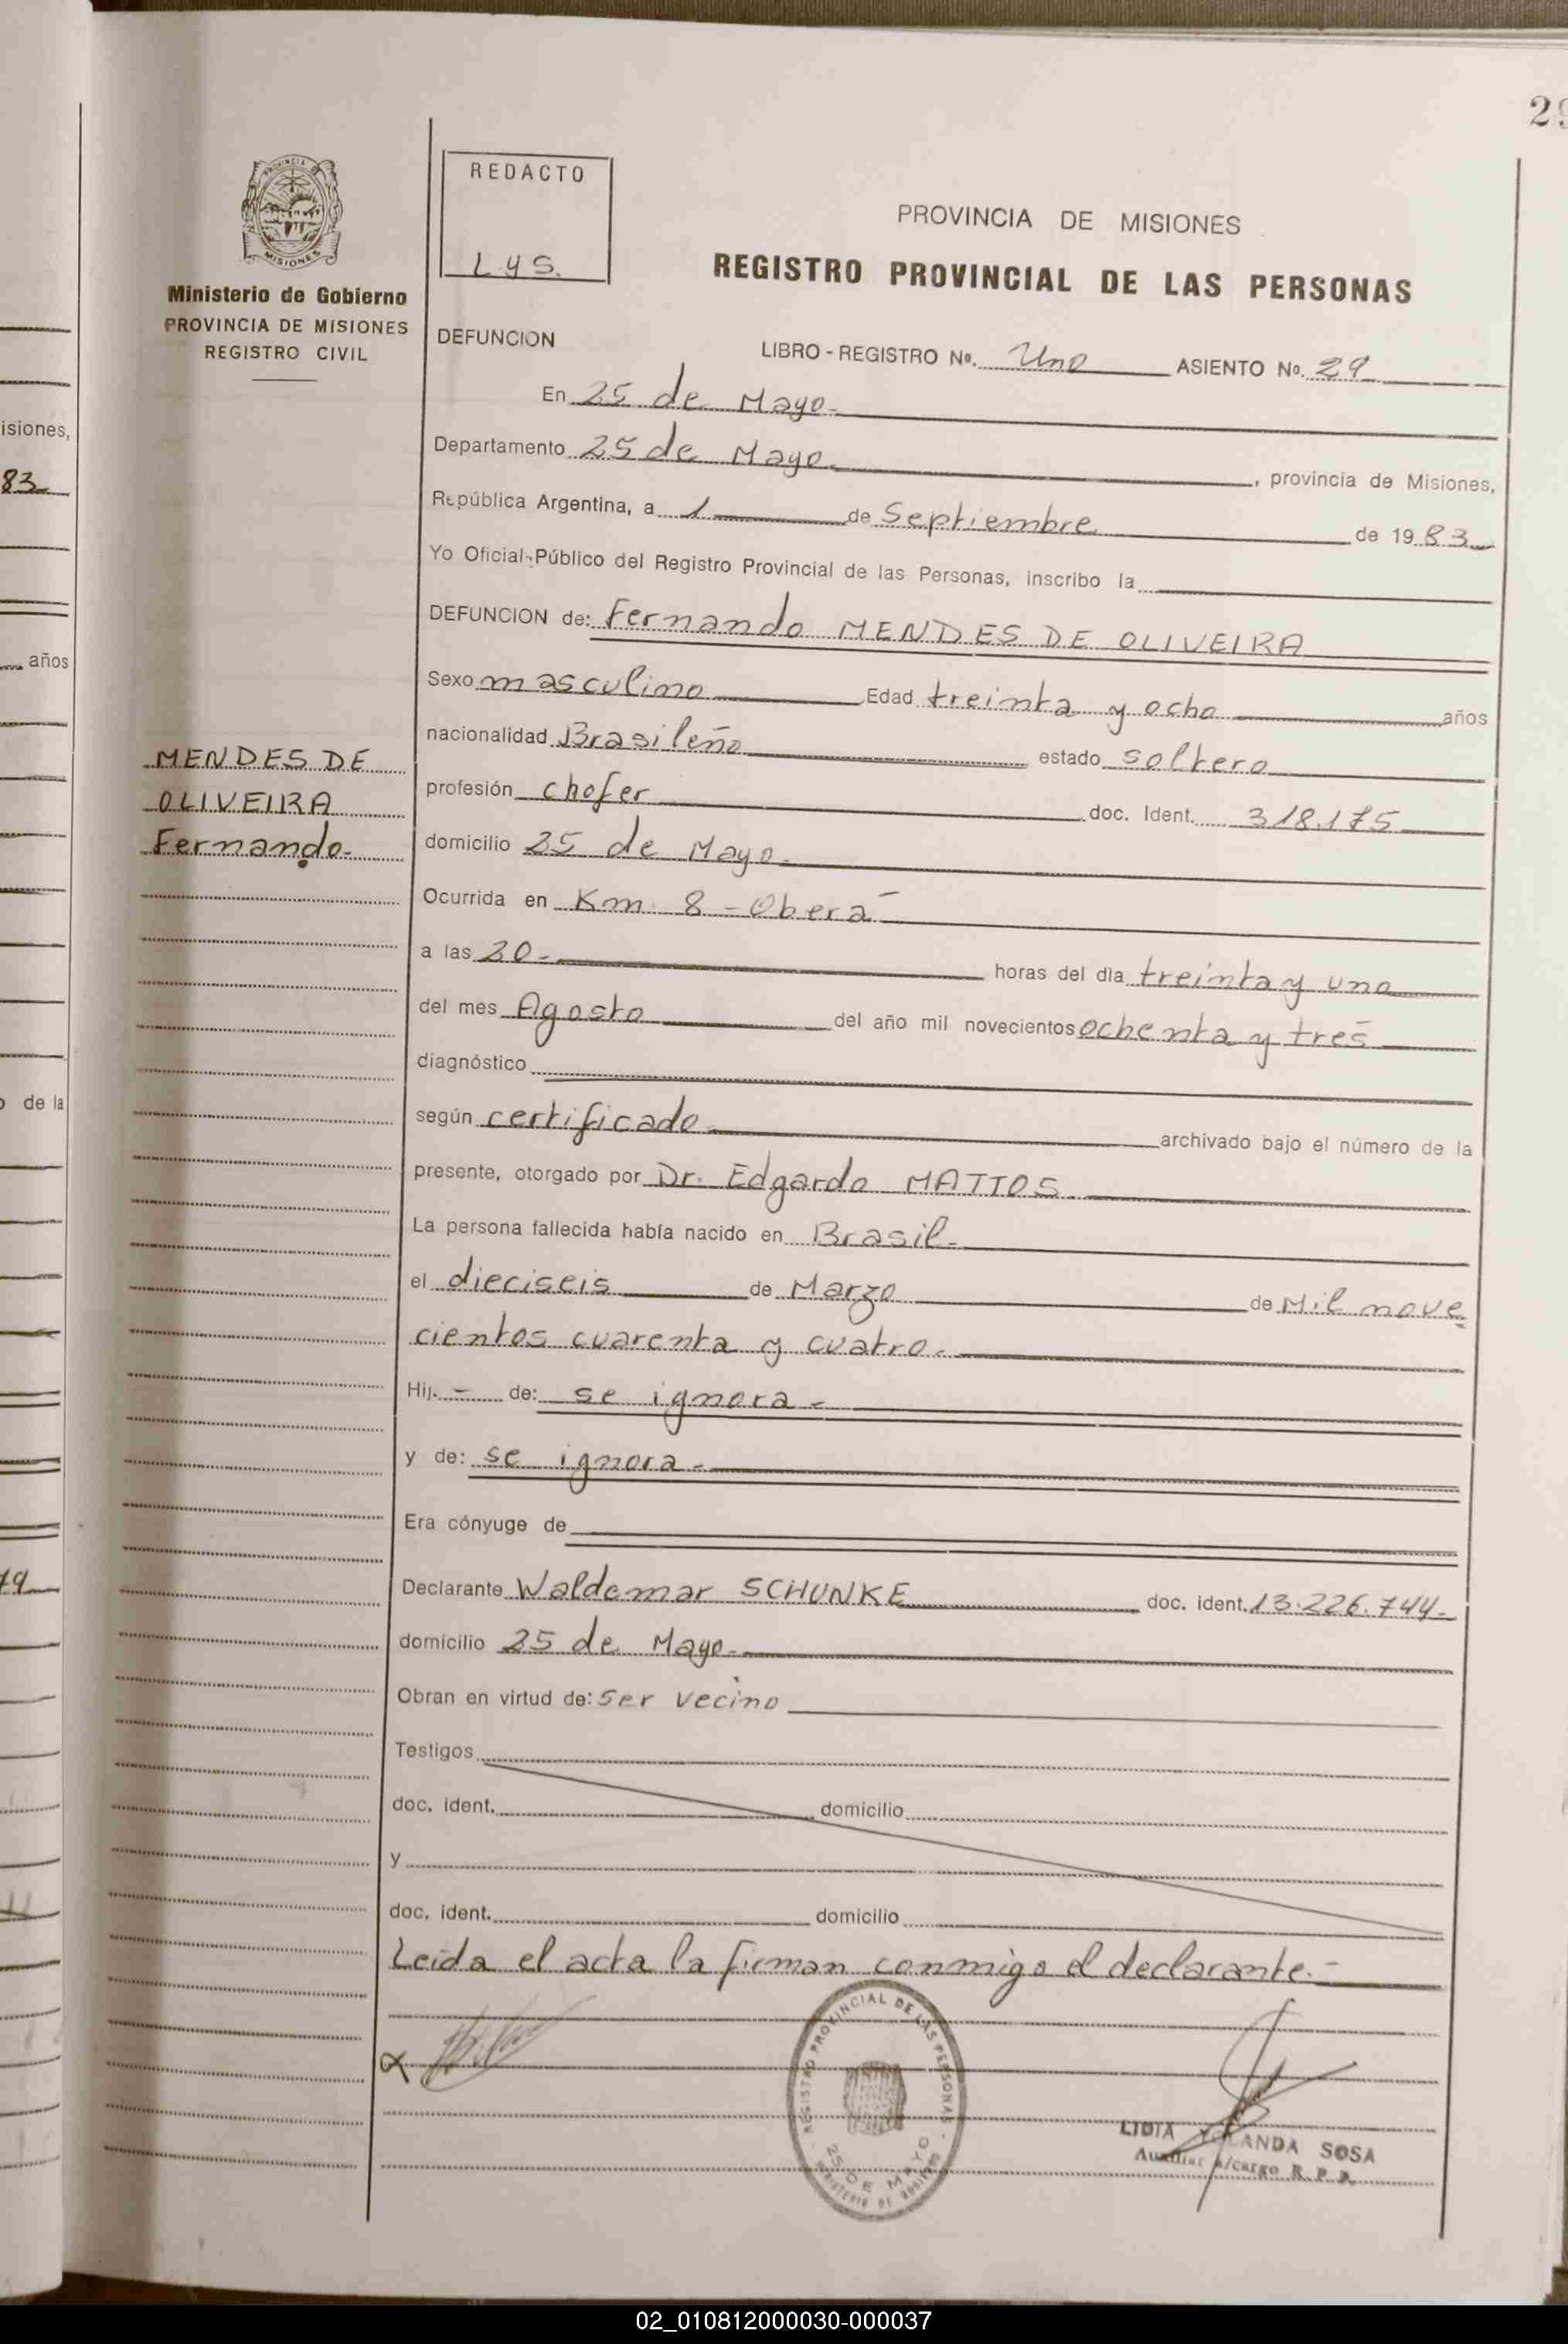 29
REDACTO
LyS.
PROVINCIA DE MISIONES
REGISTRO PROVINCIAL DE LAS PERSONAS
PROVINCIA DE MISIONES
Ministerio de Gobierno
PROVINCIA DE MISIONES
REGISTRO CIVIL
DEFUNCION
LIBRO - REGISTRO Nº. Uno ASIENTO Nº. 29
En 25 de Mayo
Departamento 25 de Mayo, provincia de Misiones,
República Argentina, a 1 de Septiembre de 1983
Yo Oficial Público del Registro Provincial de las Personas, inscribo la
DEFUNCION de: Fernando MENDES DE OLIVEIRA
Sexo masculino Edad treinta y ocho años
nacionalidad Brasileño estado soltero
profesión chofer doc. Ident. 318.175
domicilio 25 de Mayo.
Ocurrida en Km 8 - Oberá
a las 20 - horas del día treinta y uno
del mes Agosto del año mil novecientos ochenta y tres
diagnóstico
según certificado archivado bajo el número de la
presente, otorgado por Dr. Edgardo MATTOS
La persona fallecida había nacido en Brasil
el dieciseis de Marzo de Mil nove
cientos cuarenta y cuatro.
Hij. - de: se ignora -
y de: se ignora -
Era cónyuge de
Declarante Waldemar SCHUNKE doc. ident. 13.226.744-
domicilio 25 de Mayo-
Obran en virtud de: Ser vecino
Testigos
doc. ident. domicilio
y
doc. ident. domicilio
Leída el acta la firman conmigo el declarante.-
MENDES DE
OLIVEIRA
Fernando-
REGISTRO PROVINCIAL DE LAS PERSONAS
25 DE MAYO
MINISTERIO DE GOBIERNO
LIDIA YOLANDA SOSA
Auxiliar a/cargo R. P. P.
isiones,
83
años
de la
79
02_010812000030-000037